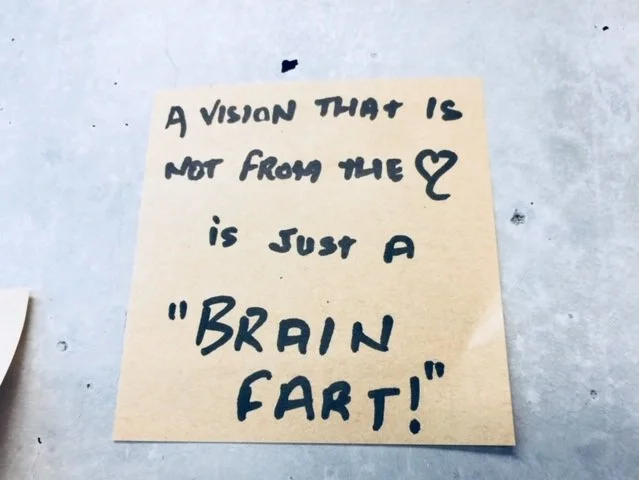 A VISION THAT IS
NOT FROM THE ♡
is JUST A
"BRAIN
FART!"